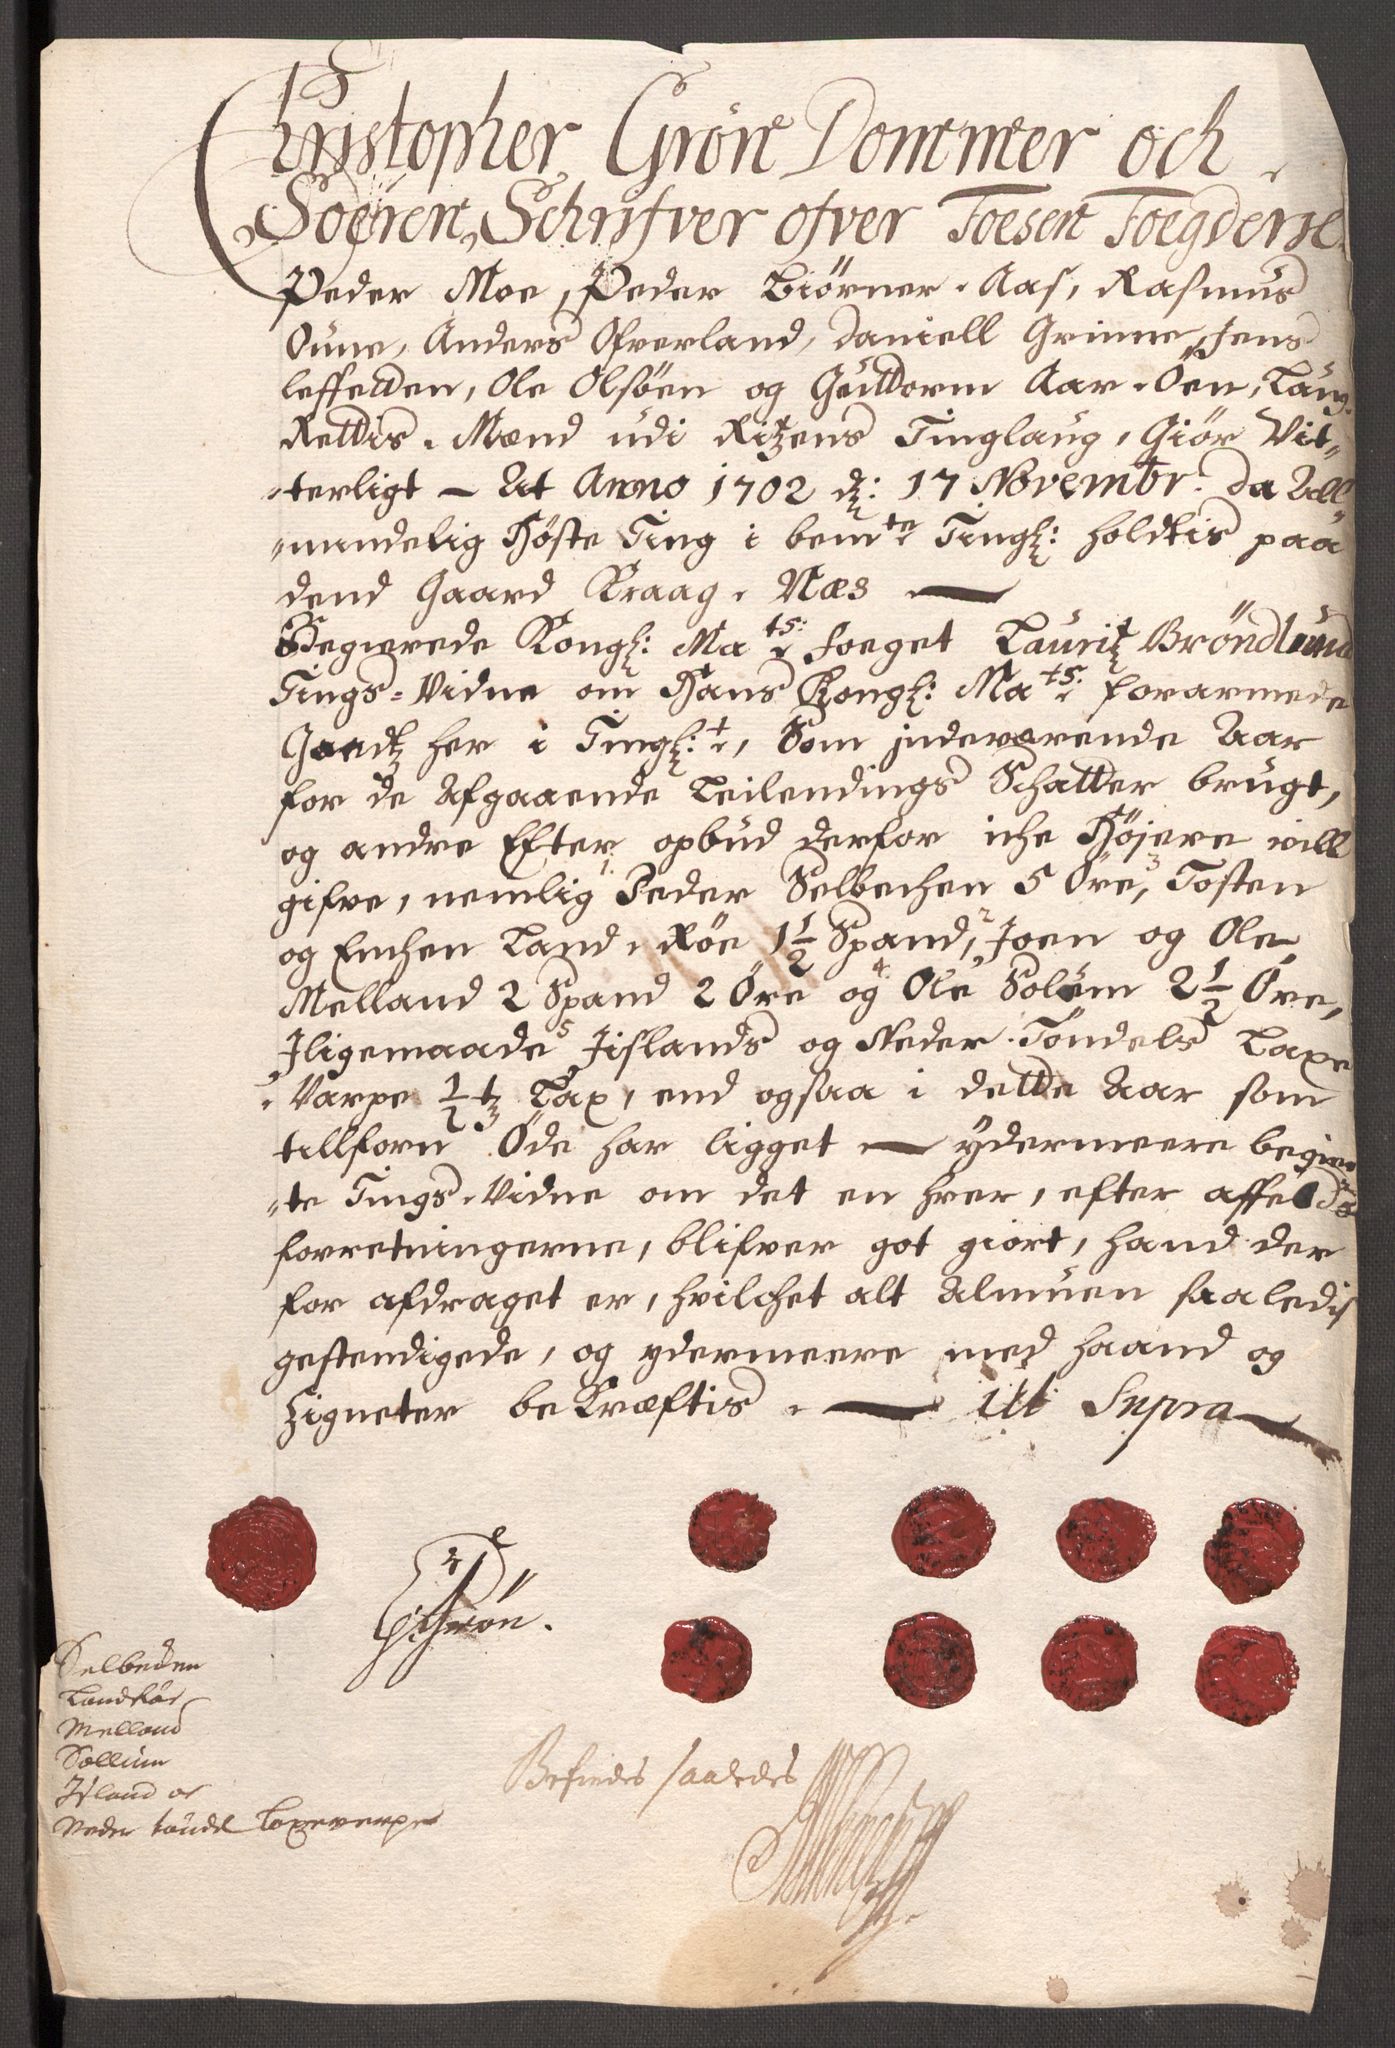 Christopher Grön Dommer och
Soeren Schrifver ofver Foesen Foegderie
Peder Moe, Peder Biörner Aas, Rasmus
Oune, Anders Ofverland, Daniell Grinne, Jens
leffetden, Ole Olsöen og Guttorm Aar-Öen, Laug-
Rettis-Mænd udi Ritzens Tinglaug, Giör Vit-
terligt - At Anno 1702 d: 17 Novembr: da All-
mindelig Höste Ting i bemte Tingl: holdtis paa
dend Gaard Kraag-Næs
Begierede Kongl: Mats: foeget Lauritz Bröndlund
Tings-Vidne om Hans Kongl: Mats: forarmede
Gaardz her i Tingl:t, Som indeværende Aar
for de Afgaaende Leilendings Schatter brugt,
og andre Efter opbud derfor iche Höjere vill
gifve, nemlig 1 Peder Selbechen 5 Öre, 3 Tosten
og Enchen Land-Röe 1½ Spand, 2 Joen og Ole
Melland 2 Spand 2 Öre og 4 Ole Solem 2½ Öre,
Iligemaade 5 Jislands og Neder-Tondels Laxe
Varpe ½ Lax, end ogsaa i dette Aar som
tillforn Öde har ligget - ydermeere begier-
te Tings-Vidne om det en hver, efter affelds
forretningerne, blifver got giort, hand der
for afdraget er, hvilchet alt Almuen saaledis
gestendigede, og ydermeere med haand og
Zigneter beKræftis - Ut Supra
Grön.
Selbechen
Landröe
Melland
Sollium
Island og
Neder tøndel Laxevarpe
Befindes saaledes